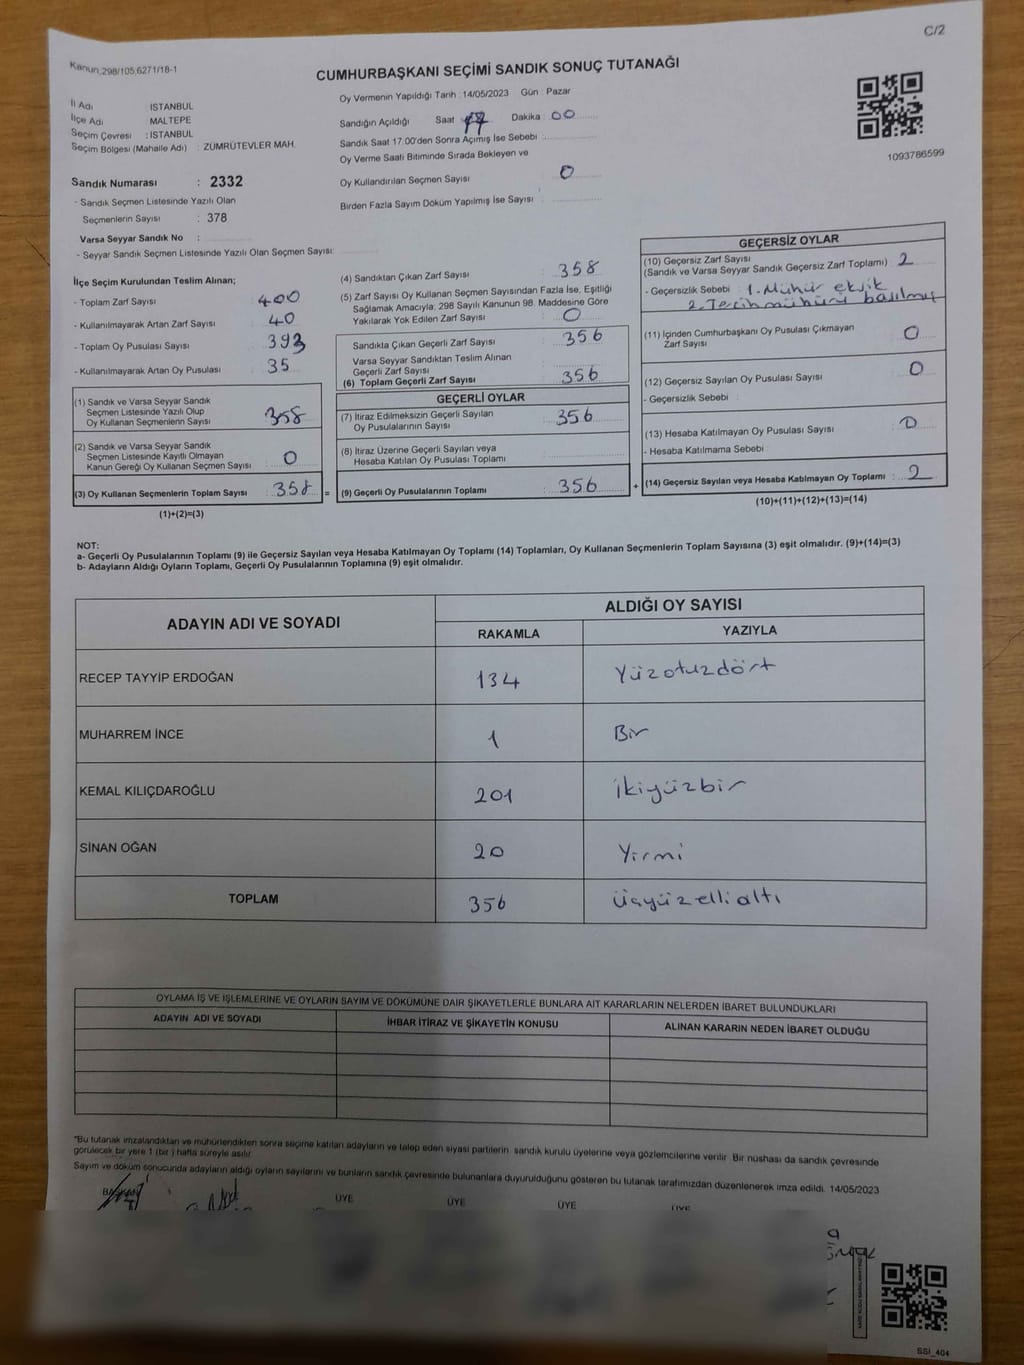 C/2
Kanun,298/105,6271/18-1
CUMHURBAŞKANI SEÇİMİ SANDIK SONUÇ TUTANAĞI
İl Adı : İSTANBUL
İlçe Adı : MALTEPE
Seçim Çevresi : İSTANBUL
Seçim Bölgesi (Mahalle Adı) : ZÜMRÜTEVLER MAH.
Sandık Numarası : 2332
- Sandık Seçmen Listesinde Yazılı Olan
Seçmenlerin Sayısı : 378
Varsa Seyyar Sandık No :
- Seyyar Sandık Seçmen Listesinde Yazılı Olan Seçmen Sayısı:
Oy Vermenin Yapıldığı Tarih : 14/05/2023 Gün : Pazar
Sandığın Açıldığı Saat 17 Dakika : 00
Sandık Saat 17:00'den Sonra Açılmış İse Sebebi :
Oy Verme Saati Bitiminde Sırada Bekleyen ve
Oy Kullandırılan Seçmen Sayısı : 0
Birden Fazla Sayım Döküm Yapılmış İse Sayısı :
1093786599
İlçe Seçim Kurulundan Teslim Alınan;
- Toplam Zarf Sayısı : 400
- Kullanılmayarak Artan Zarf Sayısı : 40
- Toplam Oy Pusulası Sayısı : 393
- Kullanılmayarak Artan Oy Pusulası : 35
(1) Sandık ve Varsa Seyyar Sandık
Seçmen Listesinde Yazılı Olup
Oy Kullanan Seçmenlerin Sayısı : 358
(2) Sandık ve Varsa Seyyar Sandık
Seçmen Listesinde Kayıtlı Olmayan
Kanun Gereği Oy Kullanan Seçmen Sayısı : 0
(3) Oy Kullanan Seçmenlerin Toplam Sayısı : 358 =
(1)+(2)=(3)
(4) Sandıktan Çıkan Zarf Sayısı : 358
(5) Zarf Sayısı Oy Kullanan Seçmen Sayısından Fazla İse, Eşitliği
Sağlamak Amacıyla, 298 Sayılı Kanunun 98. Maddesine Göre
Yakılarak Yok Edilen Zarf Sayısı : 0
Sandıkta Çıkan Geçerli Zarf Sayısı : 356
Varsa Seyyar Sandıktan Teslim Alınan
Geçerli Zarf Sayısı :
(6) Toplam Geçerli Zarf Sayısı : 356
GEÇERLİ OYLAR
(7) İtiraz Edilmeksizin Geçerli Sayılan
Oy Pusulalarının Sayısı : 356
(8) İtiraz Üzerine Geçerli Sayılan veya
Hesaba Katılan Oy Pusulası Toplamı :
(9) Geçerli Oy Pusulalarının Toplamı : 356 +
GEÇERSİZ OYLAR
(10) Geçersiz Zarf Sayısı
(Sandık ve Varsa Seyyar Sandık Geçersiz Zarf Toplamı) : 2
- Geçersizlik Sebebi : 1. Mühür eksik
2. Tercih mühürü basılmış
(11) İçinden Cumhurbaşkanı Oy Pusulası Çıkmayan
Zarf Sayısı : 0
(12) Geçersiz Sayılan Oy Pusulası Sayısı : 0
- Geçersizlik Sebebi :
(13) Hesaba Katılmayan Oy Pusulası Sayısı : 0
- Hesaba Katılmama Sebebi :
(14) Geçersiz Sayılan veya Hesaba Katılmayan Oy Toplamı : 2
(10)+(11)+(12)+(13)=(14)
NOT:
a- Geçerli Oy Pusulalarının Toplamı (9) ile Geçersiz Sayılan veya Hesaba Katılmayan Oy Toplamı (14) Toplamları, Oy Kullanan Seçmenlerin Toplam Sayısına (3) eşit olmalıdır. (9)+(14)=(3)
b- Adayların Aldığı Oyların Toplamı, Geçerli Oy Pusulalarının Toplamına (9) eşit olmalıdır.
ADAYIN ADI VE SOYADI ALDIĞI OY SAYISI
RAKAMLA YAZIYLA
RECEP TAYYİP ERDOĞAN 134 Yüzotuzdört
MUHARREM İNCE 1 Bir
KEMAL KILIÇDAROĞLU 201 İkiyüzbir
SİNAN OĞAN 20 Yirmi
TOPLAM 356 üçyüzellialtı
OYLAMA İŞ VE İŞLEMLERİNE VE OYLARIN SAYIM VE DÖKÜMÜNE DAİR ŞİKAYETLERLE BUNLARA AİT KARARLARIN NELERDEN İBARET BULUNDUKLARI
ADAYIN ADI VE SOYADI İHBAR İTİRAZ VE ŞİKAYETİN KONUSU ALINAN KARARIN NEDEN İBARET OLDUĞU
*Bu tutanak imzalandıktan ve mühürlendikten sonra seçime katılan adayların ve talep eden siyasi partilerin sandık kurulu üyelerine veya gözlemcilerine verilir. Bir nüshası da sandık çevresinde
görülecek bir yere 1 (bir) hafta süreyle asılır.
Sayım ve döküm sonucunda adayların aldığı oyların sayılarını ve bunların sandık çevresinde bulunanlara duyurulduğunu gösteren bu tutanak tarafımızdan düzenlenerek imza edildi. 14/05/2023
BAŞKAN ÜYE ÜYE ÜYE ÜYE
SSI_404